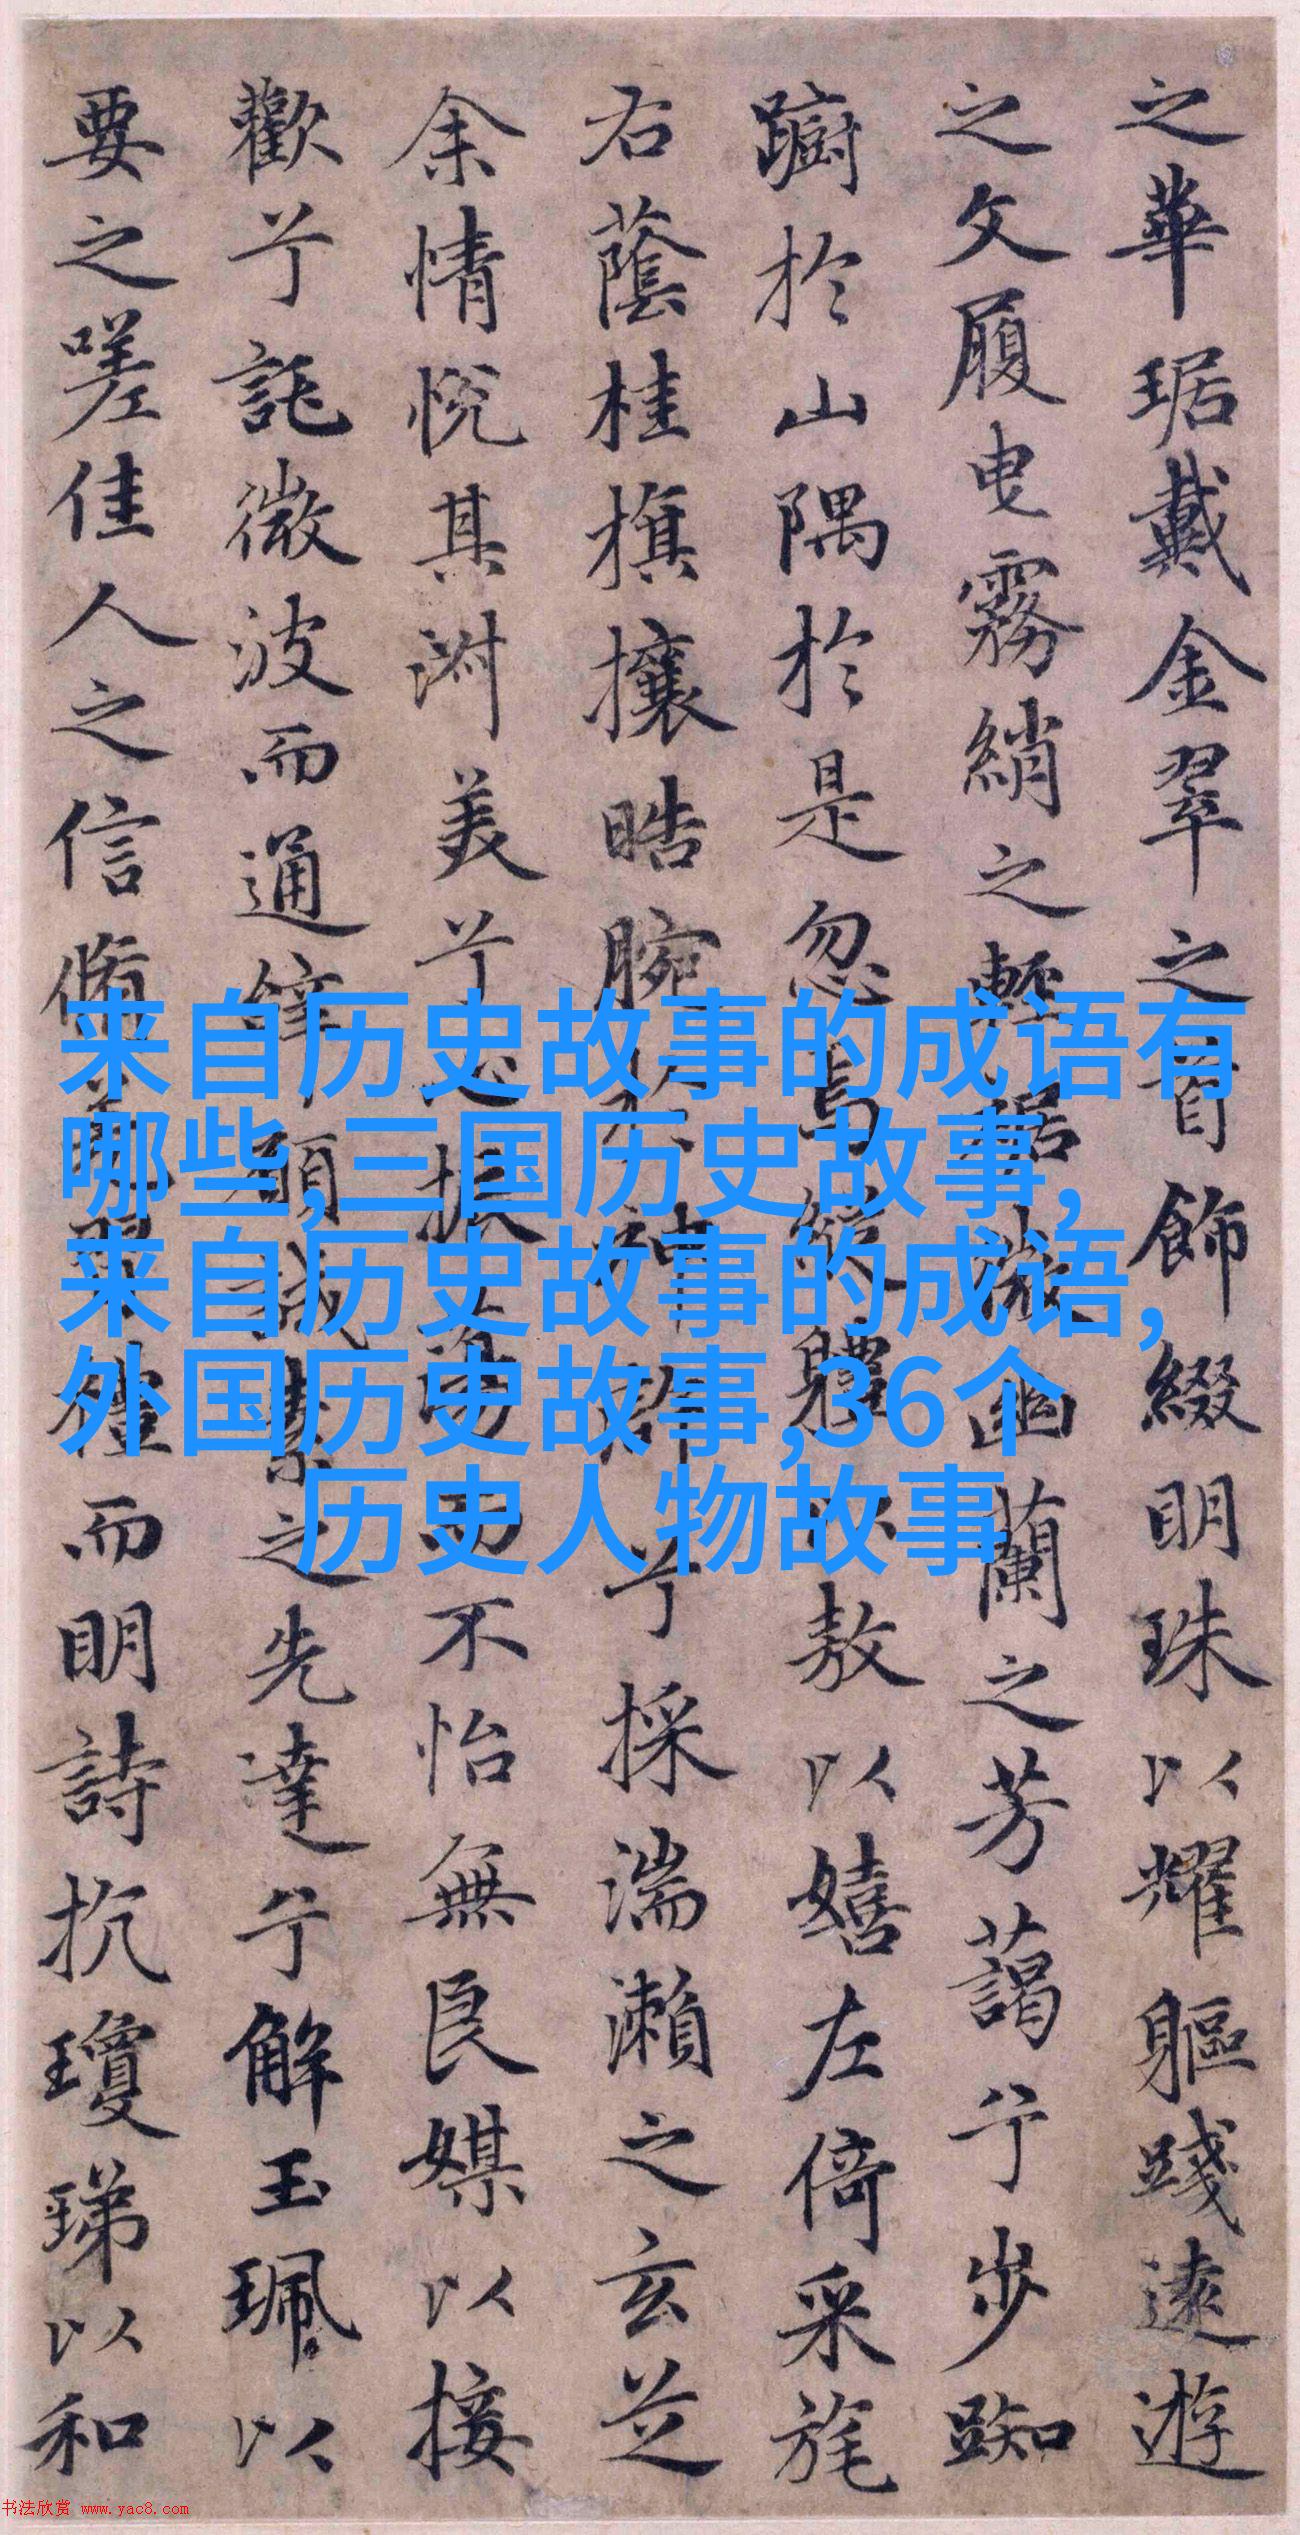 之華琚戴金翠之首飾綴明珠以耀軀踐遠遊
之文履曳霧綃之輕裾微幽蘭之芳藹兮步踟
躕於山隅於是忽焉縱體以敖以嬉左倚采旄
右蔭桂旗攘皓腕於神滸兮採湍瀨之玄芝
余情悅其淑美兮心振蕩而不怡無良媒以接
歡兮託微波而通辭願誠素之先達兮解玉珮以
要之嗟佳人之信脩羌習禮而明詩抗瓊珶以和
来自历史故事的成语有
哪些,三国历史故事,
来自历史故事的成语,
外国历史故事,36个
历史人物故事
书法欣赏 www.yac8.com